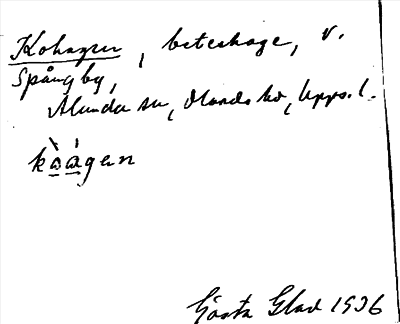 Kohagen, beteshage, v.
Spångby,
Alunda sn, Olands hd, Upps. l.
kòágen
Gösta Glad 1936